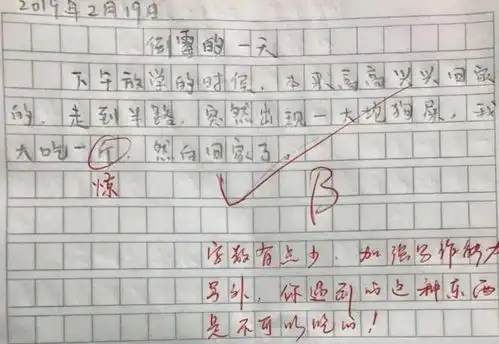 2019年2月19日
倒霉的一天
下午放学的时候，本来高高兴兴回家
的，走到半路，突然出现一大坨狗屎，我
大吃一斤，然后回家了。
惊
B
字数有点少，加强写作能力
另外，你遇到的这种东西
是不可以吃的！